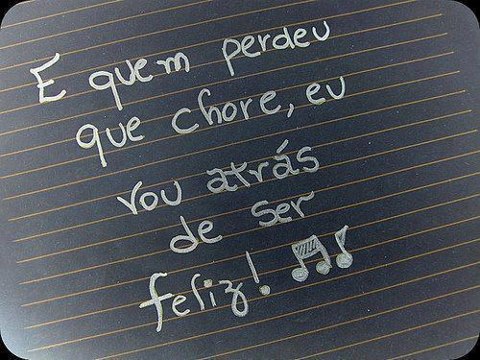 E quem perdeu
que chore, eu
vou atrás
de ser
feliz!